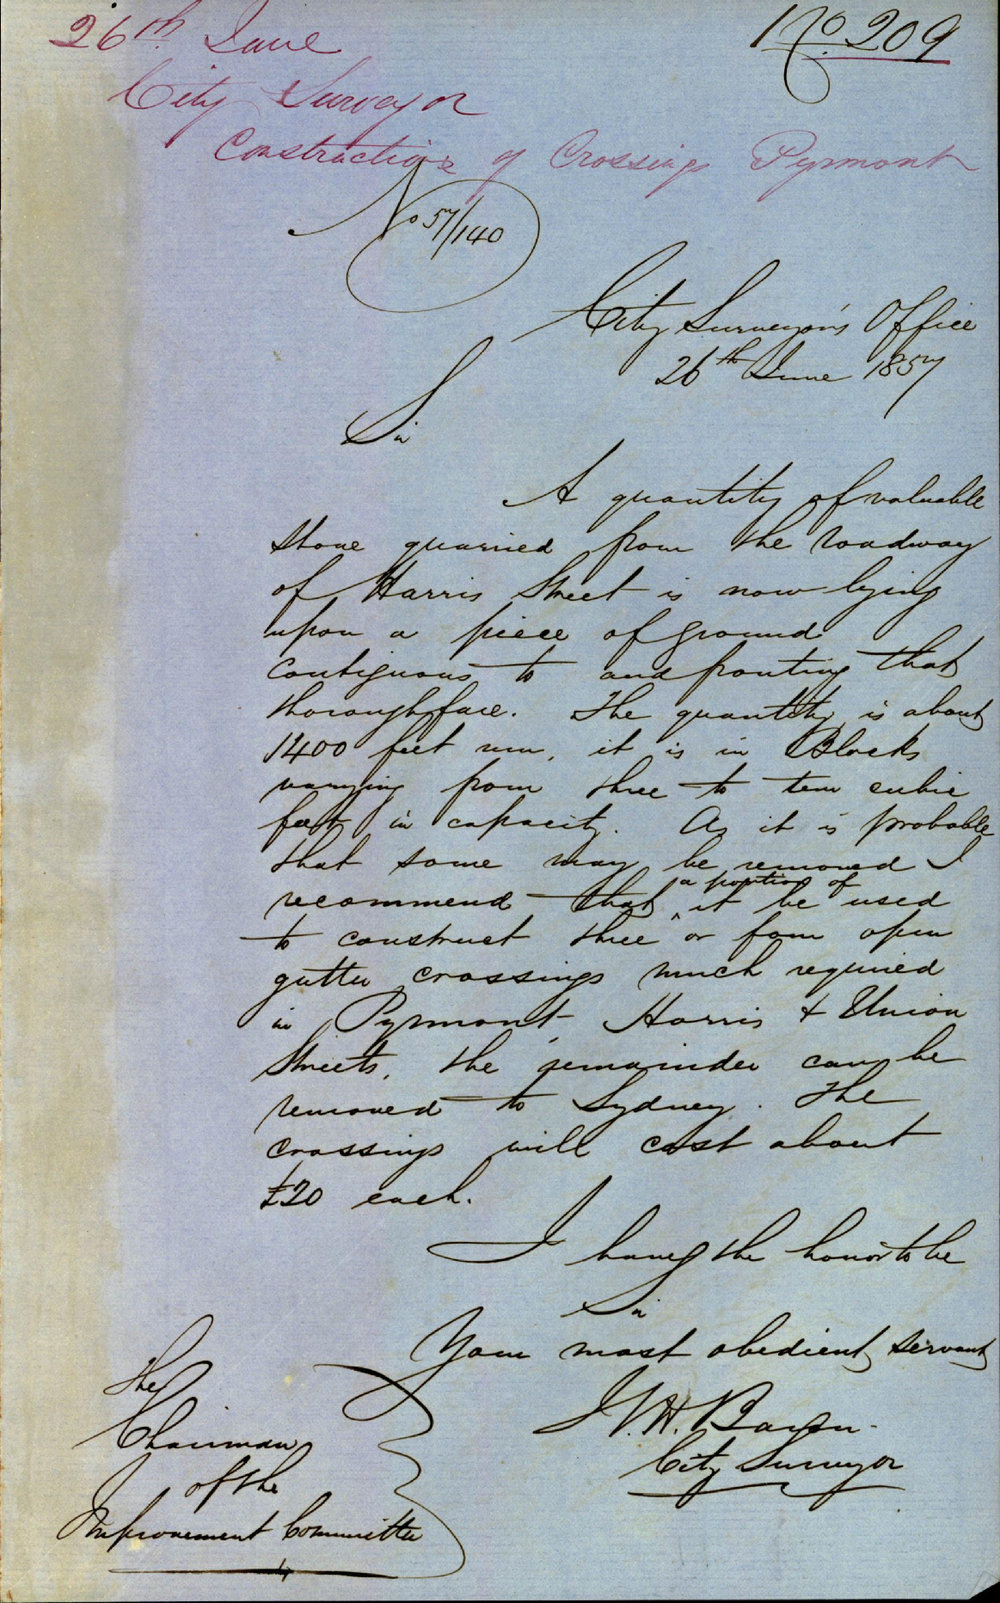 26th June
No. 209
City Surveyor
Construction of Crossings Pyrmont
No 57/140
City Surveyor's Office
26th June 1857
Sir
A quantity of valuable
stone quarried from the roadway
of Harris Street is now lying
upon a piece of ground
contiguous to and fronting that
thoroughfare. The quantity is about
1400 feet run, it is in Blocks
varying from three to ten cubic
feet in capacity. As it is probable
that some may be removed I
recommend that a portion of it be used
to construct three or four open
gutter crossings much required
in Pyrmont, Harris & Union
Streets, the remainder can be
removed to Sydney. The
crossings will cost about
£20 each.
I have the honor to be
Sir
Your most obedient servant
City Surveyor
The
Chairman
of the
Improvement Committee